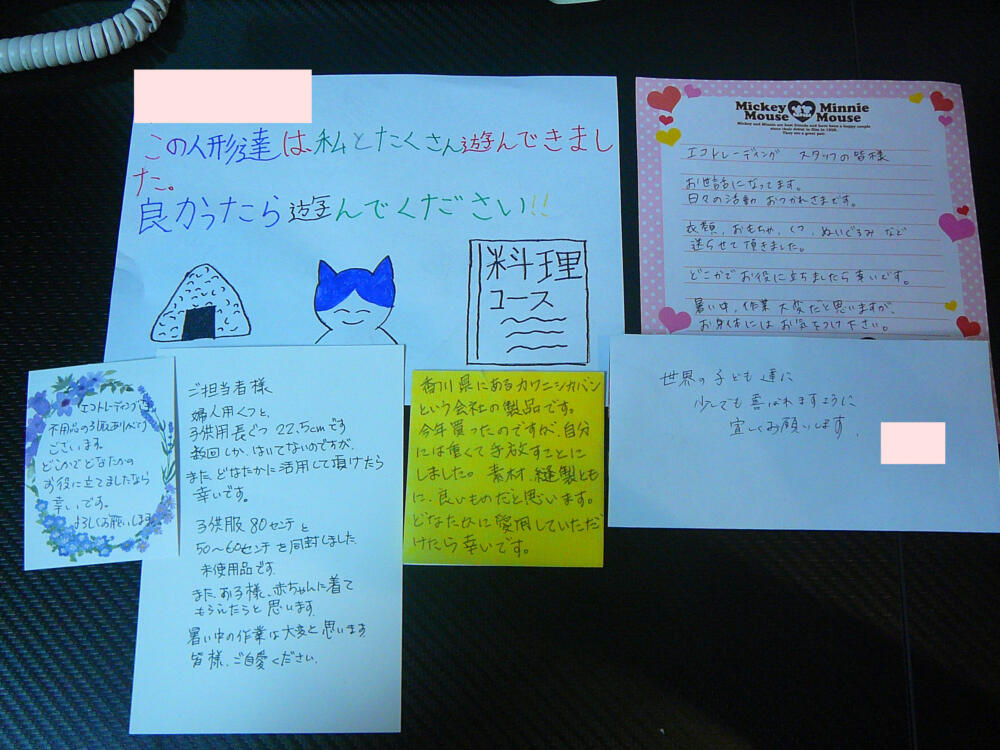 この人形達は私とたくさん遊んできまし
た。
良かったら遊んでください!!
料理
コース
Mickey Minnie
Mouse Mouse
Mickey and Minnie are best friends and have been a happy couple
since their debut in film in 1928.
They are a great pair.
エコトレーディング スタッフの皆様
お世話になってます。
日々の活動 おつかれさまです。
衣類、おもちゃ、くつ、ぬいぐるみ など
送らせて頂きました。
どこかでお役に立ちましたら幸いです。
暑い中、作業大変だと思いますが、
お身体にはお気をつけ下さい。
エコトレーディング様
不用品の引取ありがとう
ございます。
どこかでどなたかの
お役に立てましたなら
幸いです。
よろしくお願いします
ご担当者様
婦人用くつと、
子供用長ぐつ 22.5cmです
数回しか、はいてないのですが、
また どなたかに活用して頂けたら
幸いです。
子供服 80センチと
50〜60センチを同封しました
未使用品です
また、お子様、赤ちゃんに着て
もらえたらと思います
暑い中の作業は大変と思います
皆様、ご自愛ください.
香川県にあるカワニシカバン
という会社の製品です。
今年買ったのですが、自分
には重くて手放すことに
しました。素材、縫製とも
に、良いものだと思います。
どなたかに愛用していただ
けたら幸いです。
世界の子ども達に
少しでも喜ばれますように
宜しくお願いします.